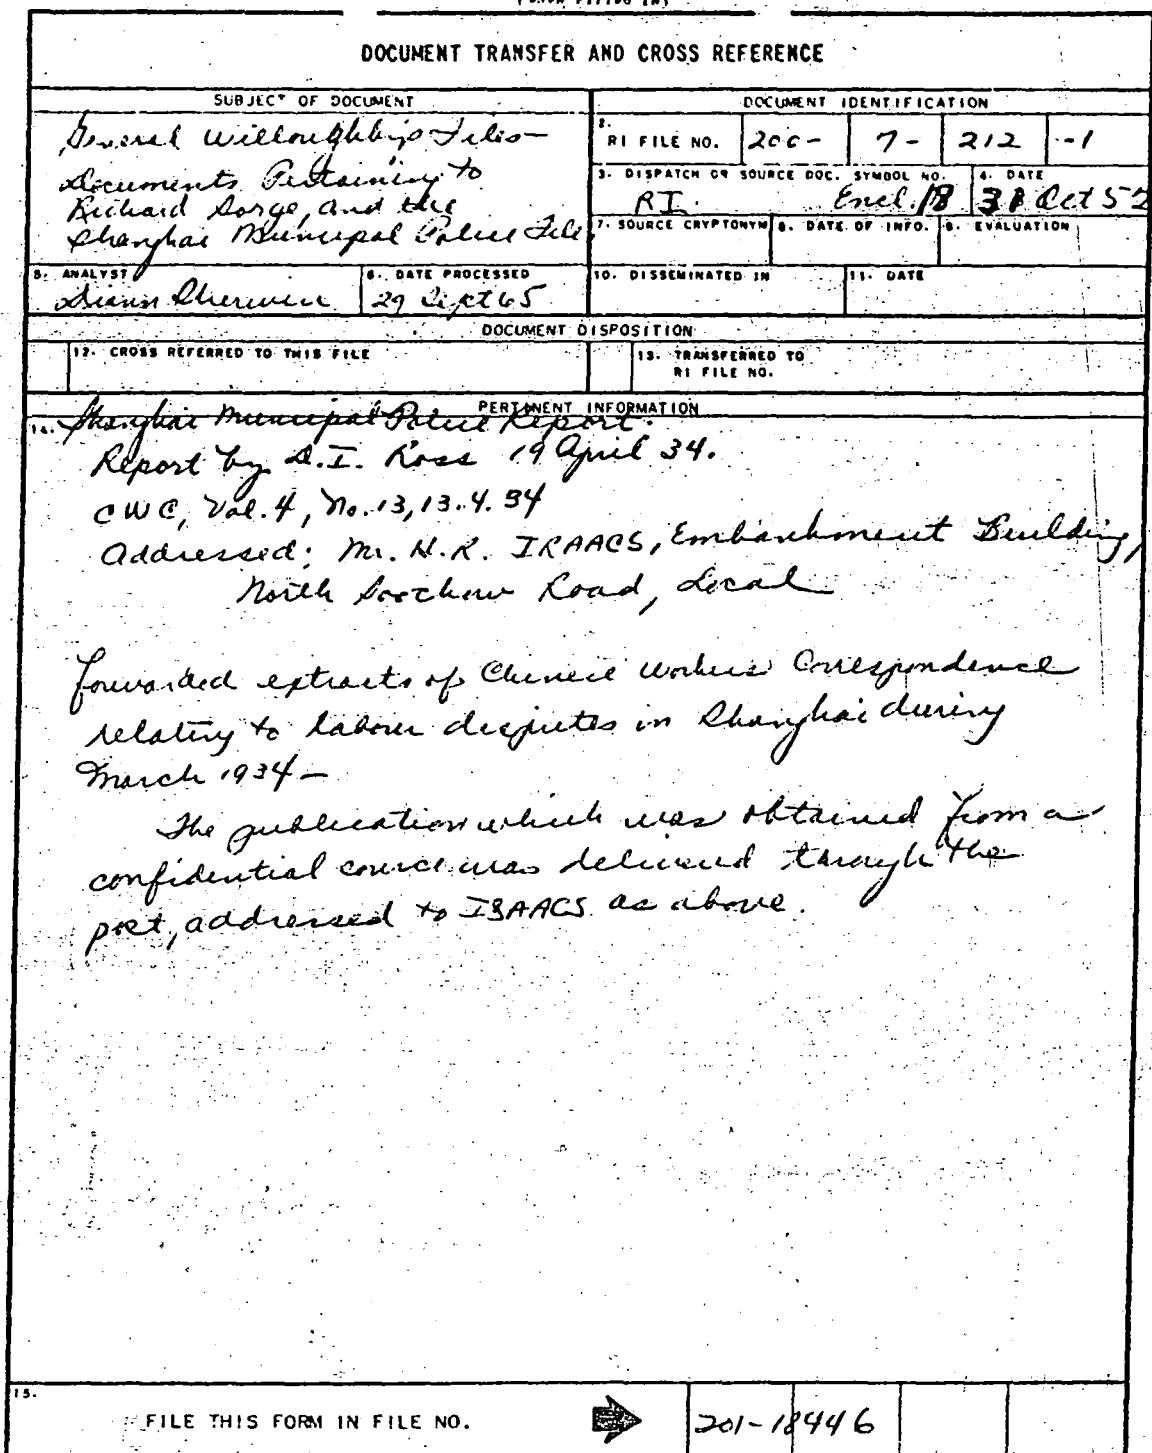 (WHEN FILLED IN)
DOCUMENT TRANSFER AND CROSS REFERENCE
SUBJECT OF DOCUMENT
General Willoughby's Files—
Documents Pertaining to
Richard Sorge, and the
Shanghai Municipal Police File
DOCUMENT IDENTIFICATION
2. RI FILE NO. 200- 7- 212 -1
3. DISPATCH OR SOURCE DOC. SYMBOL NO. 4. DATE
RI Encl. 18 31 Oct 52
7. SOURCE CRYPTONYM 8. DATE OF INFO. 9. EVALUATION
5. ANALYST 6. DATE PROCESSED 10. DISSEMINATED IN 11. DATE
29 Sept 65
DOCUMENT DISPOSITION
12. CROSS REFERRED TO THIS FILE 13. TRANSFERRED TO
RI FILE NO.
PERTINENT INFORMATION
14. Shanghai Municipal Police Report.
Report by D.I. Ross 19 April 34.
CWC, Vol. 4, No. 13, 13.4.34
Addressed: Mr. H.R. ISAACS, Embankment Building,
North Soochow Road, Local
forwarded extracts of Chinese Workers Correspondence
relating to labour disputes in Shanghai during
March 1934—
The publication which was obtained from a
confidential source was delivered through the
post, addressed to ISAACS as above.
15.
FILE THIS FORM IN FILE NO. 201-18446